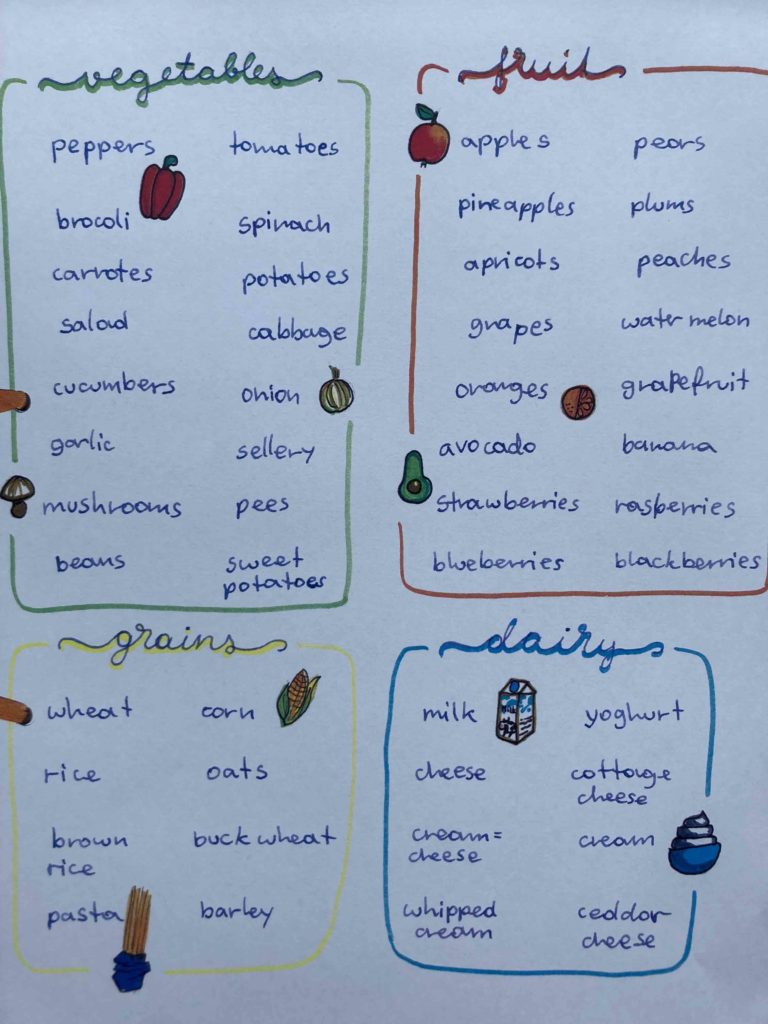 vegetables
peppers tomatoes
brocoli spinach
carrotes potatoes
salad cabbage
cucumbers onion
garlic sellery
mushrooms pees
beans sweet
potatoes
fruit
apples pears
pineapples plums
apricots peaches
grapes water melon
oranges grapefruit
avocado banana
strawberries rasberries
blueberries blackberries
grains
wheat corn
rice oats
brown buck wheat
rice
pasta barley
dairy
milk yoghurt
cheese cottage
cheese
cream= cream
cheese
whipped ceddar
cream cheese